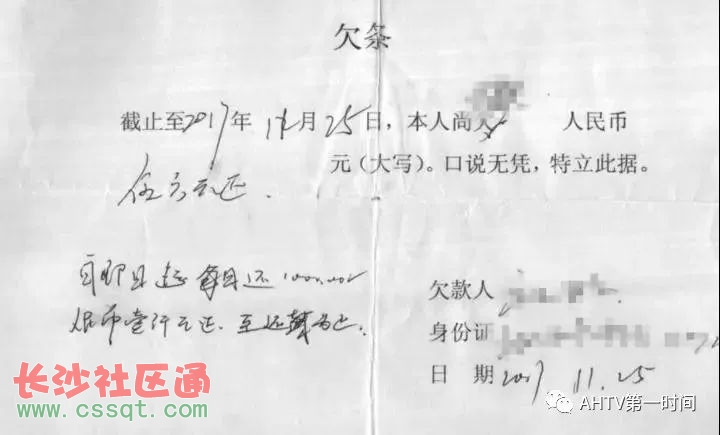 欠条
截止至2017年 月25日，本人尚欠 人民币
伍万元正. 元（大写）。口说无凭，特立此据。
自即日起每月还1000.00元
人民币壹仟元正.至还 为止.
欠款人
身份证
日 期 2017 11.25
长沙社区通
www.cssqt.com
AHTV第一时间